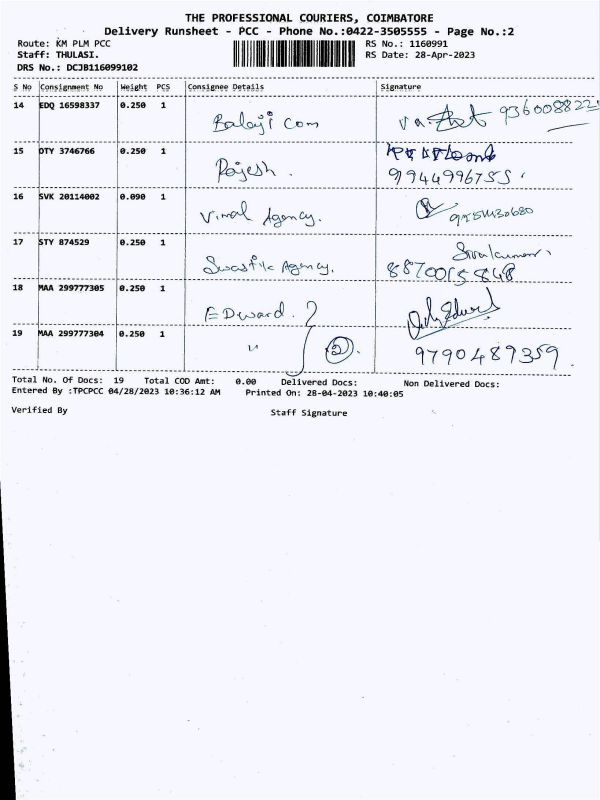 THE PROFESSIONAL COURIERS, COIMBATORE
Delivery Runsheet - PCC - Phone No.:0422-3505555 - Page No.:2
Route: KM PLM PCC
RS No.: 1160991
Staff: THULASI.
RS Date: 28-Apr-2023
DRS No.: DCJB116099102
S No Consignment No Weight PCS Consignee Details Signature
14 EDQ 16598337 0.250 1
Balaji Com 9360088221
15 DTY 3746766 0.250 1
Rajesh . 9944996755 .
16 SVK 20114002 0.090 1
Vimal Agency.
17 STY 874529 0.250 1 Sivakumar.
Swastik Agency. 8870015848
18 MAA 299777305 0.250 1
EDward .
19 MAA 299777304 0.250 1
〃 2 9790489359.
Total No. Of Docs: 19 Total COD Amt: 0.00 Delivered Docs: Non Delivered Docs:
Entered By :TPCPCC 04/28/2023 10:36:12 AM Printed On: 28-04-2023 10:40:05
Verified By Staff Signature